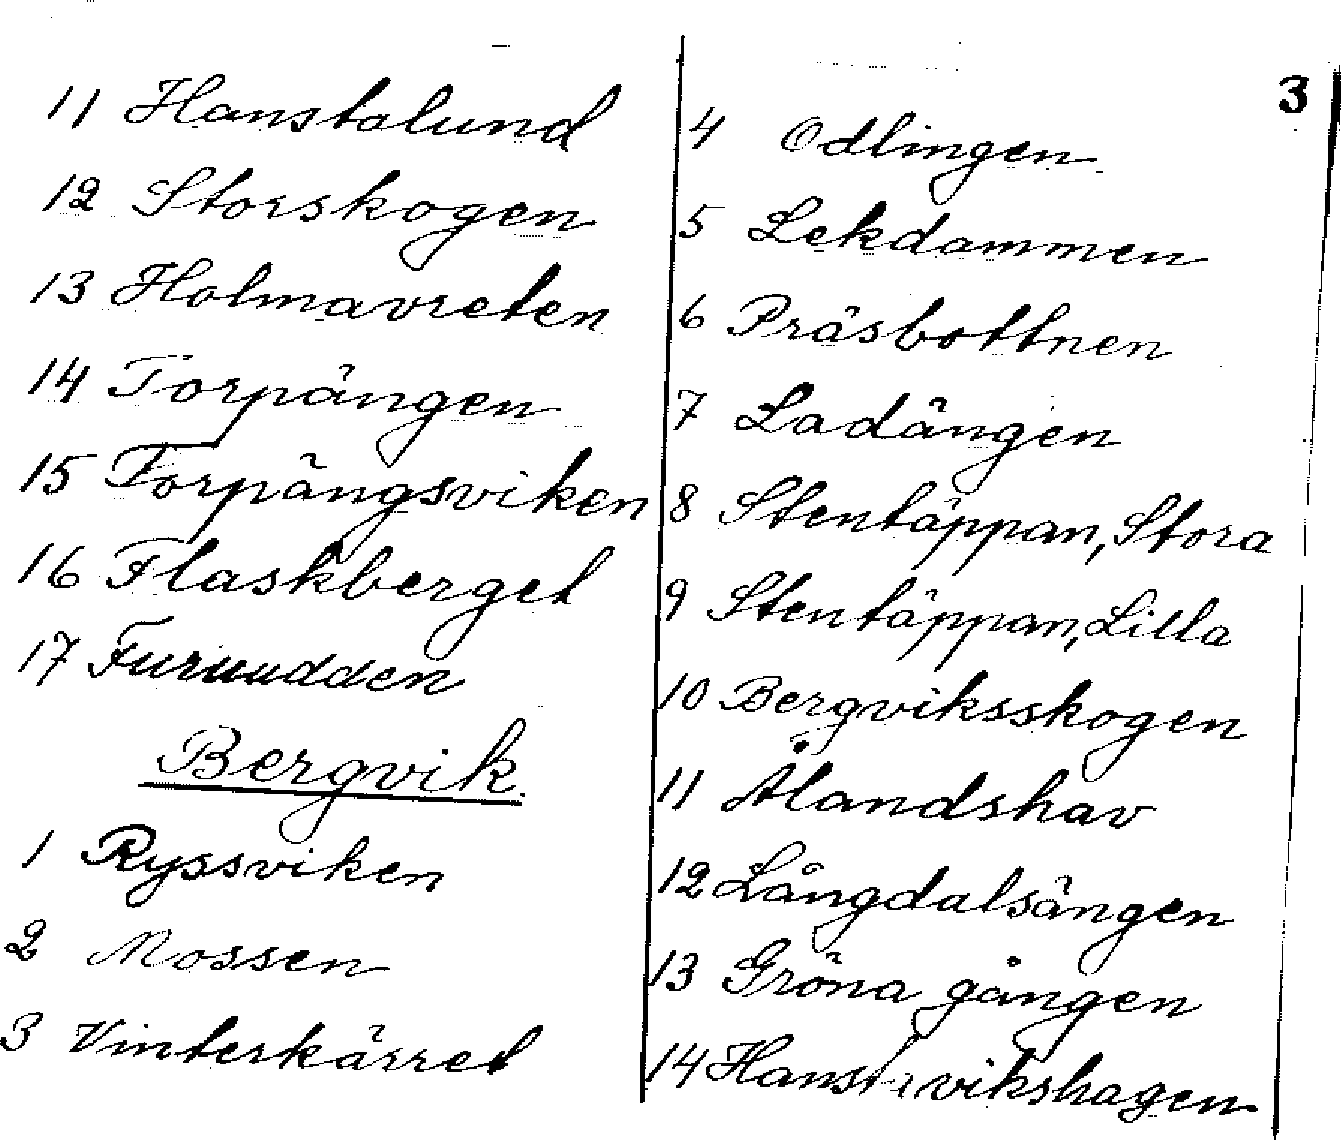 3
11 Hanstalund
12 Storskogen
13 Holmavreten
14 Torpängen
15 Torpängsviken
16 Flaskberget
17 Furuudden
Bergvik.
1 Ryssviken
2 Mossen
3 Vinterkärret
4 Odlingen
5 Lekdammen
6 Präsbottnen
7 Ladängen
8 Stentäppan, Stora
9 Stentäppan, Lilla
10 Bergviksskogen
11 Ålandshav
12 Långdalsängen
13 Gröna gången
14